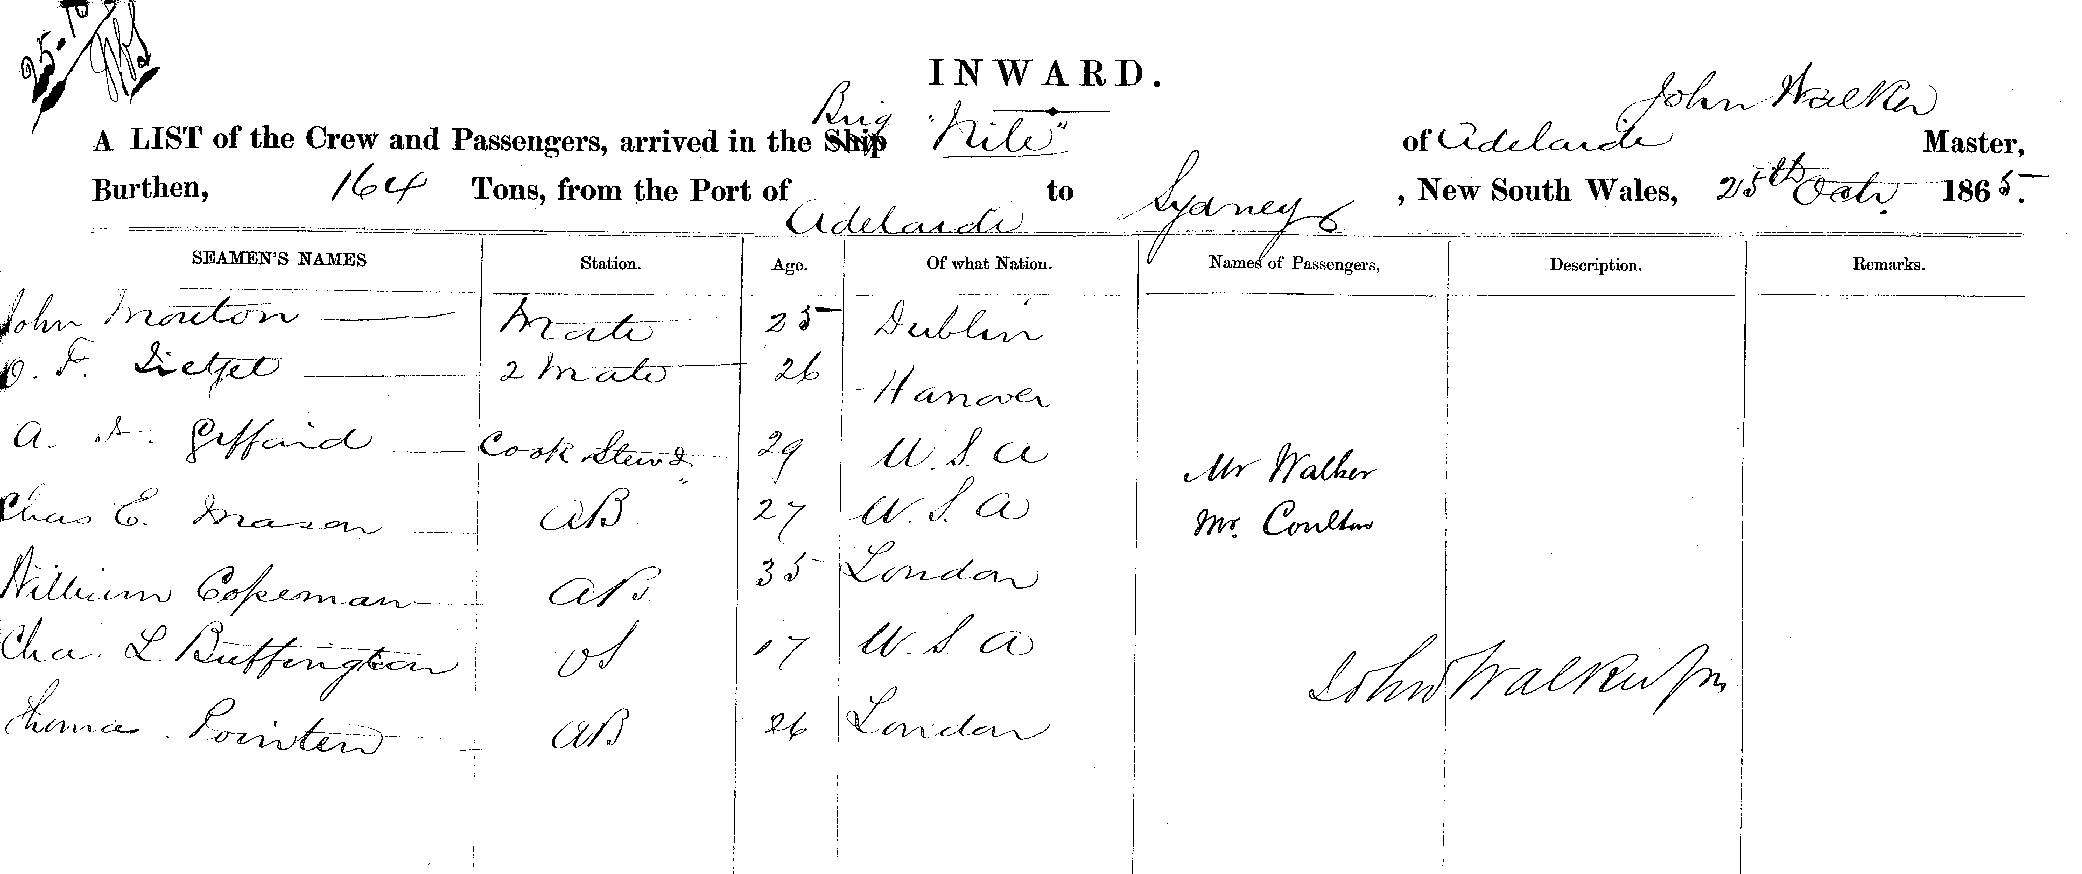 INWARD.
John Walker
A LIST of the Crew and Passengers, arrived in the Ship Brig "Nile" of Adelaide Master,
Burthen, 164 Tons, from the Port of Adelaide to Sydney, New South Wales, 25th Octr. 1865.
SEAMEN'S NAMES Station. Age. Of what Nation. Names of Passengers, Description. Remarks.
John Mouton Mate 25 Dublin
O. F. Dietzel 2 Mate 26 Hanover
A. F. Giffaird Cook Stewd. 29 U. S. A
Chas E. Mason AB 27 U. S. A
William Copeman AB. 35 London
Cha. L. Buffington OS 17 U. S. A
Thomas Pointen AB 26 London
Mr Walker
Mr. Coulter
John Walker Jn